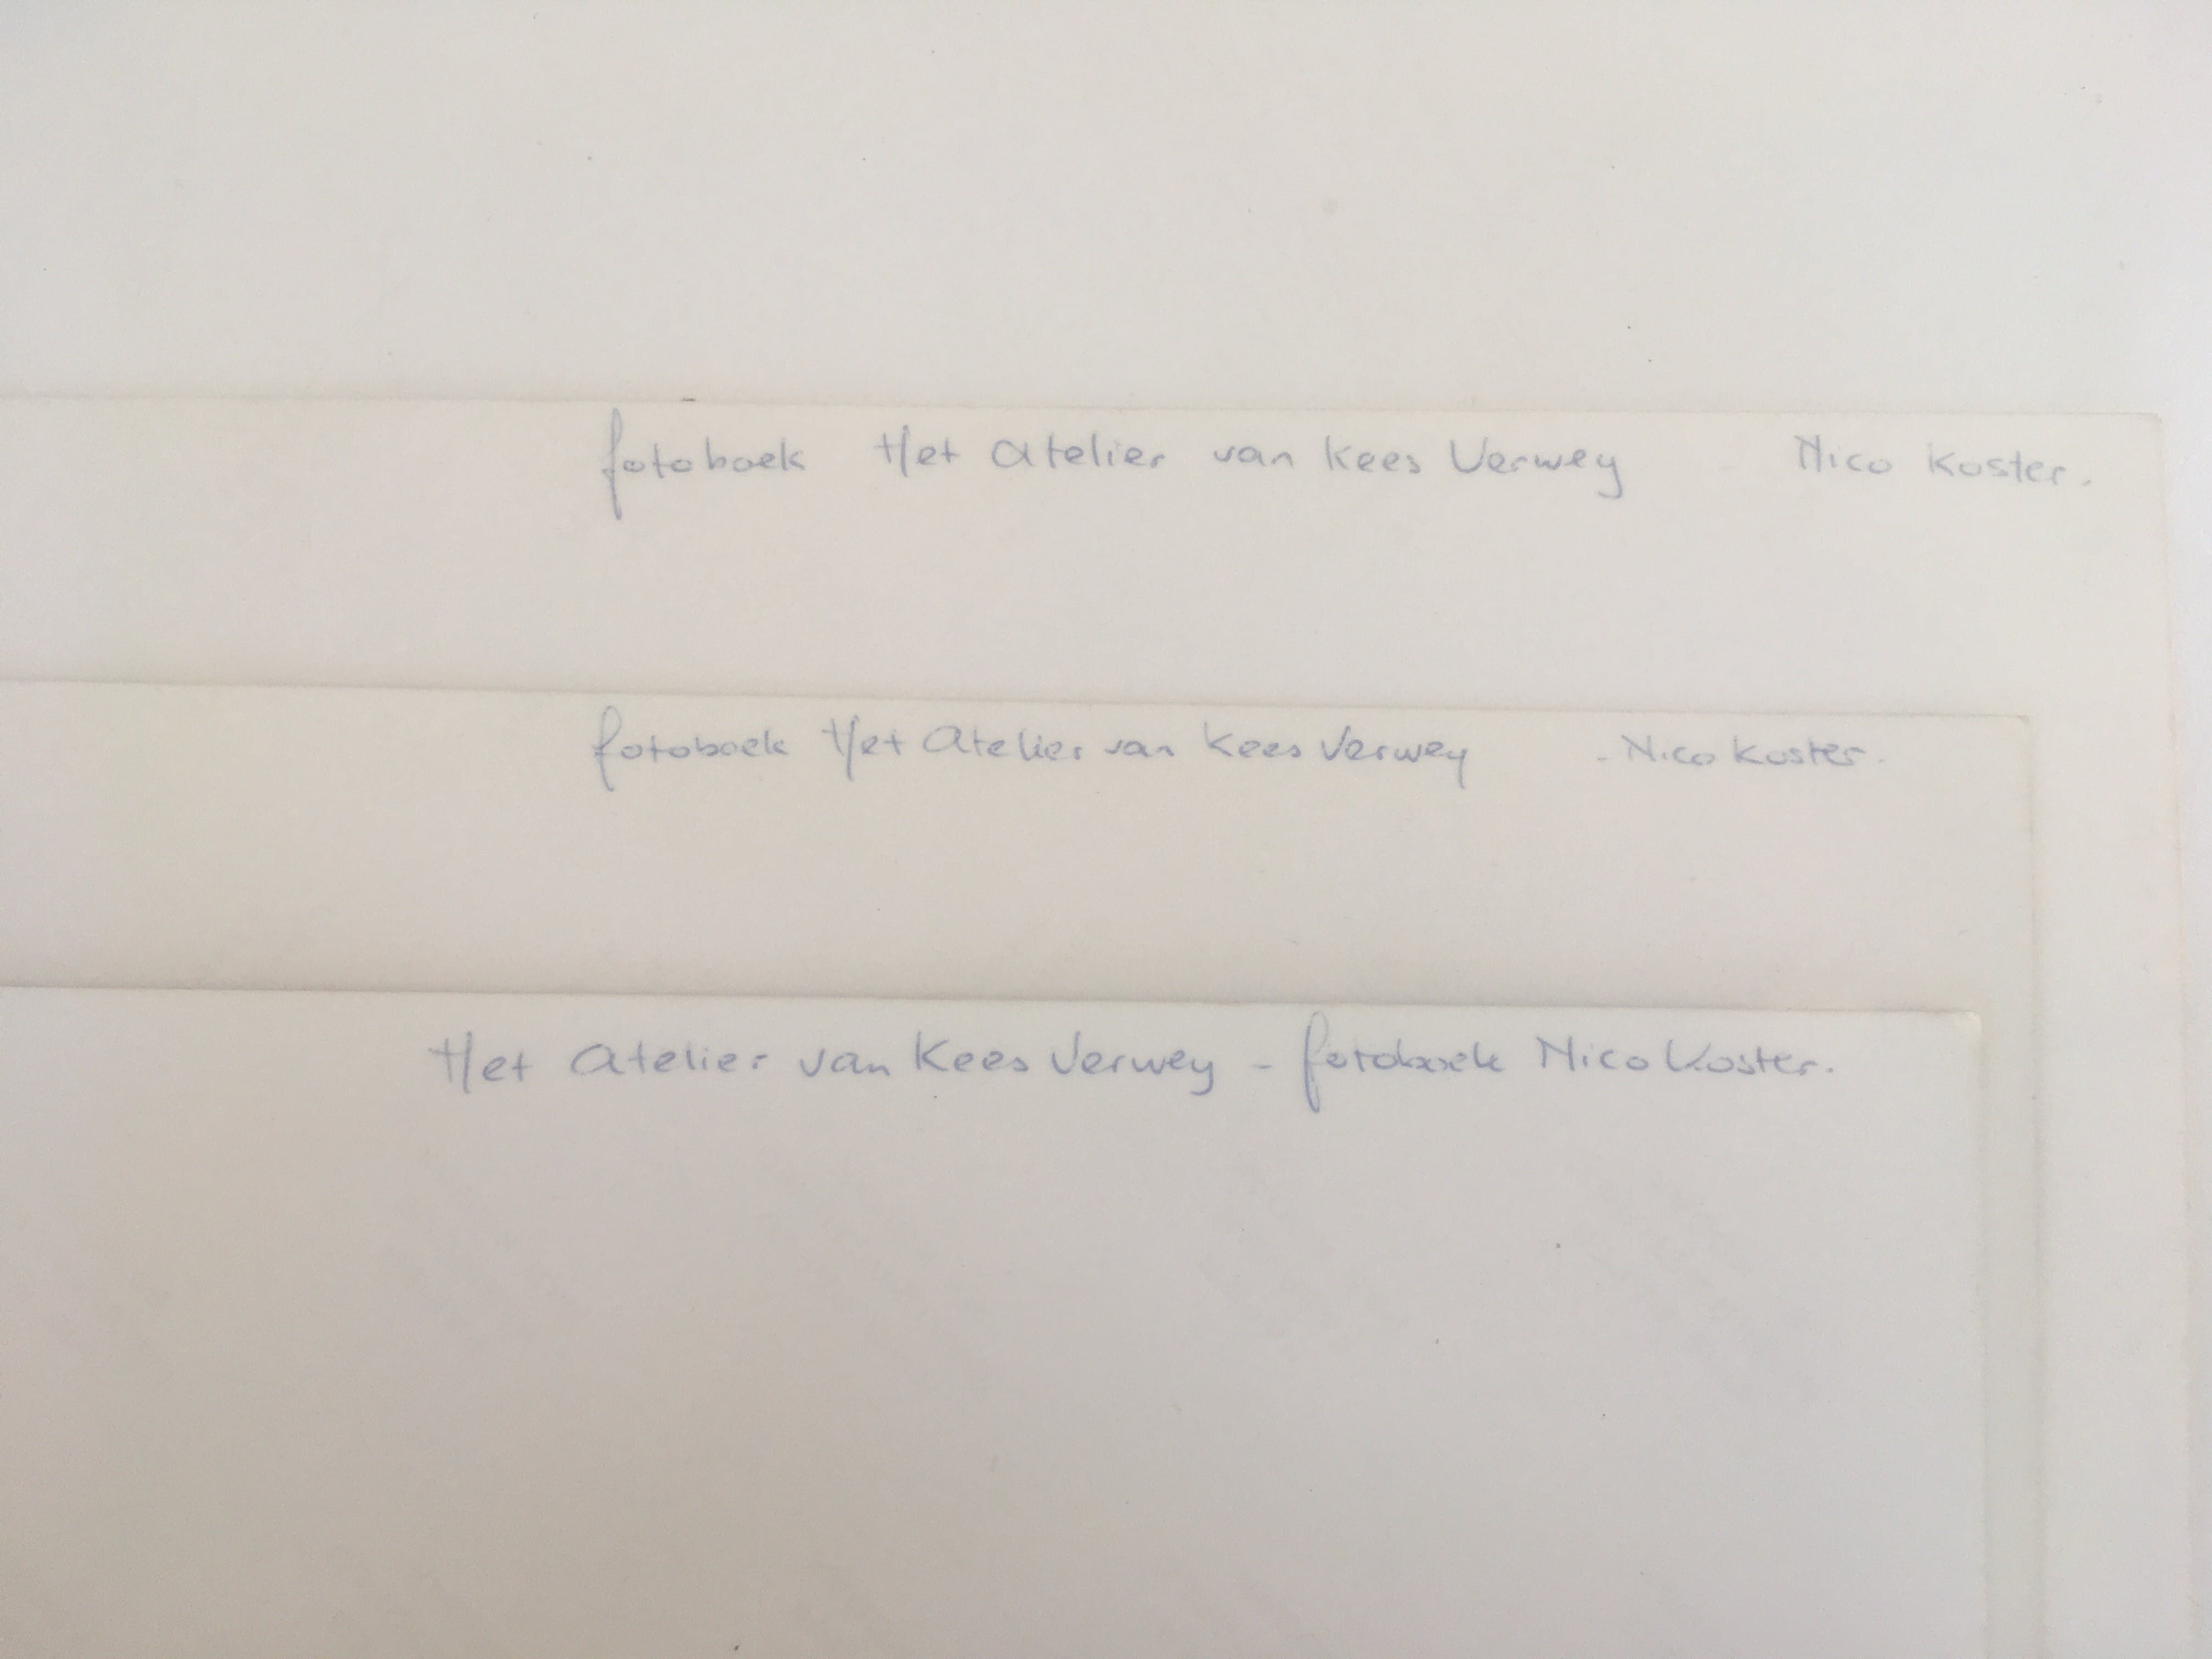 fotoboek Het Atelier van Kees Verwey Nico Koster.
fotoboek Het Atelier van Kees Verwey - Nico Koster.
Het Atelier van Kees Verwey - fotoboek Nico Koster.